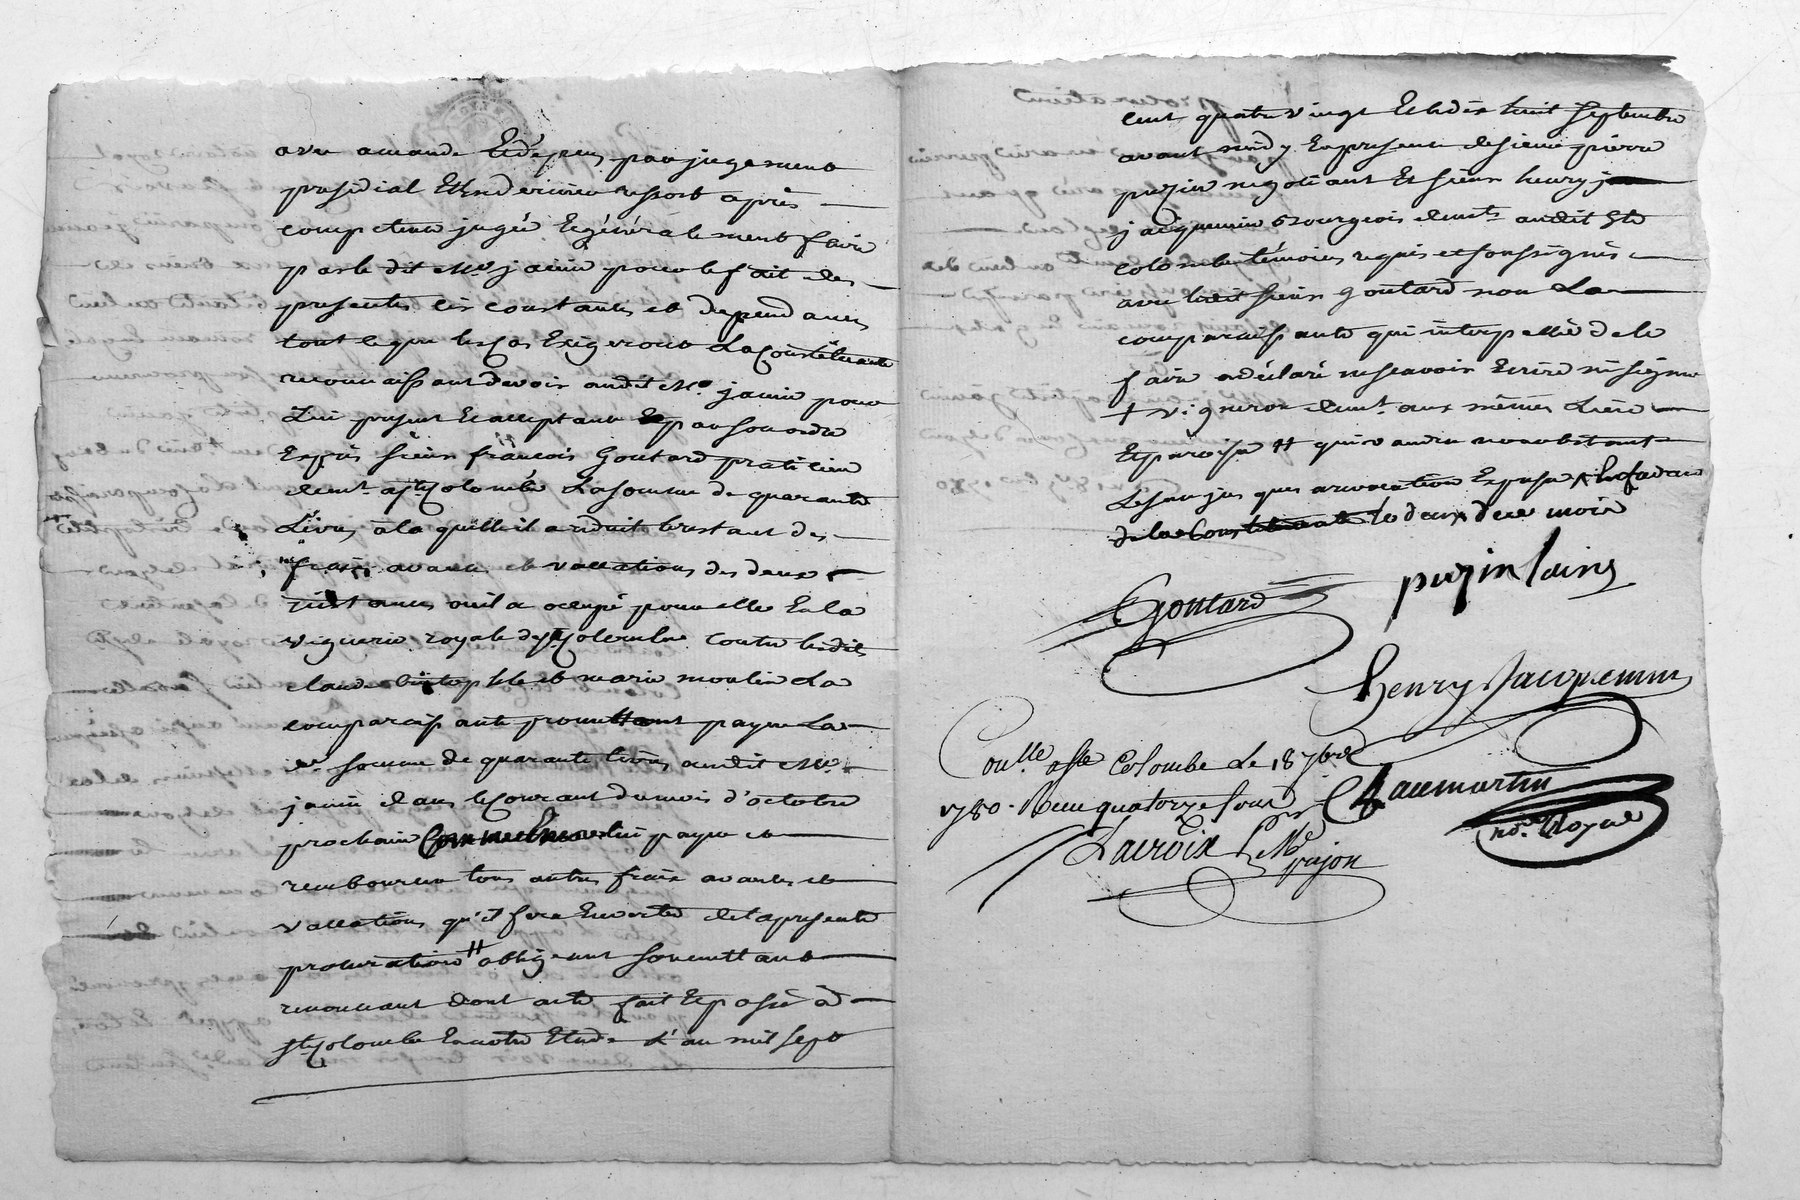 avec amande Et depens par jugement
presidial Et En dernier ressort après
competence jugée Et généralement faire
par le dit Me janin pour le fait des
presentes circonstances et dependances
tout ce que les cas Exigeront La Constituante
reconnaissant devoir audit Me janin pour
Lui present Et acceptant par son ordre
Exprès sieur françois Goutard praticien
demt a ste Colombe La somme de quarante
Livres à la quelle il a reduit le restant des
frais avances et vaccations des deux
instances ou il a occupé pour elle En la
viguerie royale de Ste Colombe contre lesdits
claude et marie moulin La
comparaissante promettant payer La
de somme de quarante livres audit Me
janin dans le Courant du mois d'octobre
prochain Comme Encore lui payer et
rembourser tous autres frais avances et
vaccations qu'il fera En vertu de la presente
procuration # obligeant soumettant
renonceant dont acte fait Et passé à
ste Colombe En notre Etude L'an mil sept
cent quatre vingt Et le dix huit septembre
avant midy En presence de sieur pierre
puzin negotiant Et sieur henry
jacquemin Bourgeois demts audit Ste
colombe témoins requis et soussignés
avec ledit sieur Goutard non La
comparaissante qui interpellée de le
faire a déclaré ne scavoir Ecrire ni signer
+ vigneron demt aux mêmes Lieu
Et paroisse # qui vaudra nonobstant
Laps
de la Constituante le deux dece mois
Goutard puzin lainé
henry Jacquemin
Coullé a Ste Colombe Le 18 7bre
1780. Recu quatorze sous
Lacroix Pr Mr pujon
Not. Royal